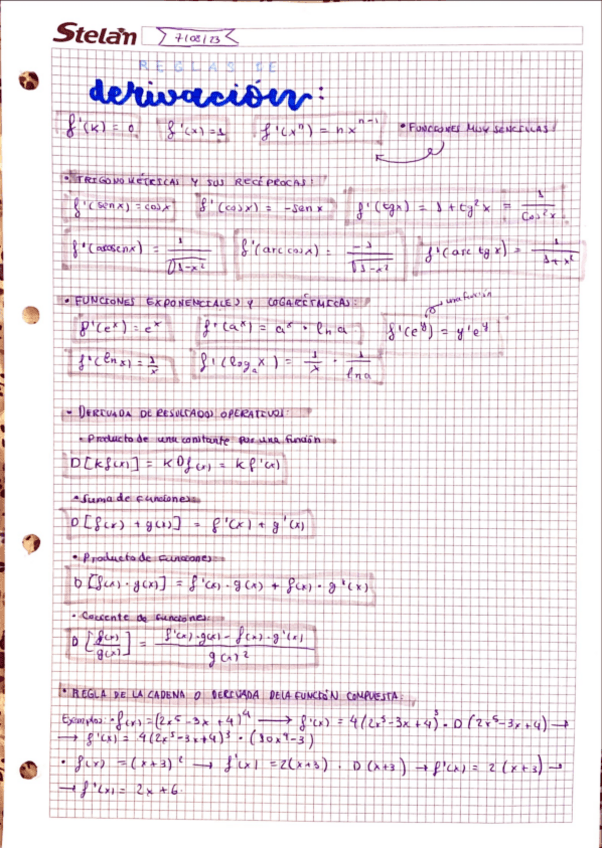 Stelan 7/08/23
REGLAS DE
derivación:
f'(k) = 0 f'(x) = 1 f'(xⁿ) = nxⁿ⁻¹ • FUNCIONES MUY SENCILLAS
• TRIGONOMÉTRICAS Y SUS RECÍPROCAS:
f'(senx) = cosx f'(cosx) = -senx f'(tgx) = 1 + tg²x = 1/cos²x
f'(arcsenx) = 1/√(1-x²) f'(arc cosx) = -1/√(1-x²) f'(arc tgx) = 1/(1+x²)
• FUNCIONES EXPONENCIALES Y LOGARÍTMICAS:
una función
f'(eˣ) = eˣ f'(aˣ) = aˣ · lna f'(eʸ) = y'eʸ
f'(lnx) = 1/x f'(logₐx) = 1/x · 1/lna
• DERIVADA DE RESULTADOS OPERATIVOS:
• Producto de una constante por una función
D[kf(x)] = kDf(x) = kf'(x)
• Suma de funciones
D[f(x) + g(x)] = f'(x) + g'(x)
• Producto de funciones
D[f(x) · g(x)] = f'(x) · g(x) + f(x) · g'(x)
• Cociente de funciones
D[f(x)/g(x)] = (f'(x) · g(x) - f(x) · g'(x))/g(x)²
• REGLA DE LA CADENA O DERIVADA DE LA FUNCIÓN COMPUESTA:
Ejemplos: • f(x) = (2x⁵ - 3x + 4)⁴ → f'(x) = 4(2x⁵ - 3x + 4)³ · D(2x⁵ - 3x + 4) →
→ f'(x) = 4(2x⁵ - 3x + 4)³ · (10x⁴ - 3)
• f(x) = (x+3)² → f'(x) = 2(x+3) · D(x+3) → f'(x) = 2(x+3) →
→ f'(x) = 2x + 6.